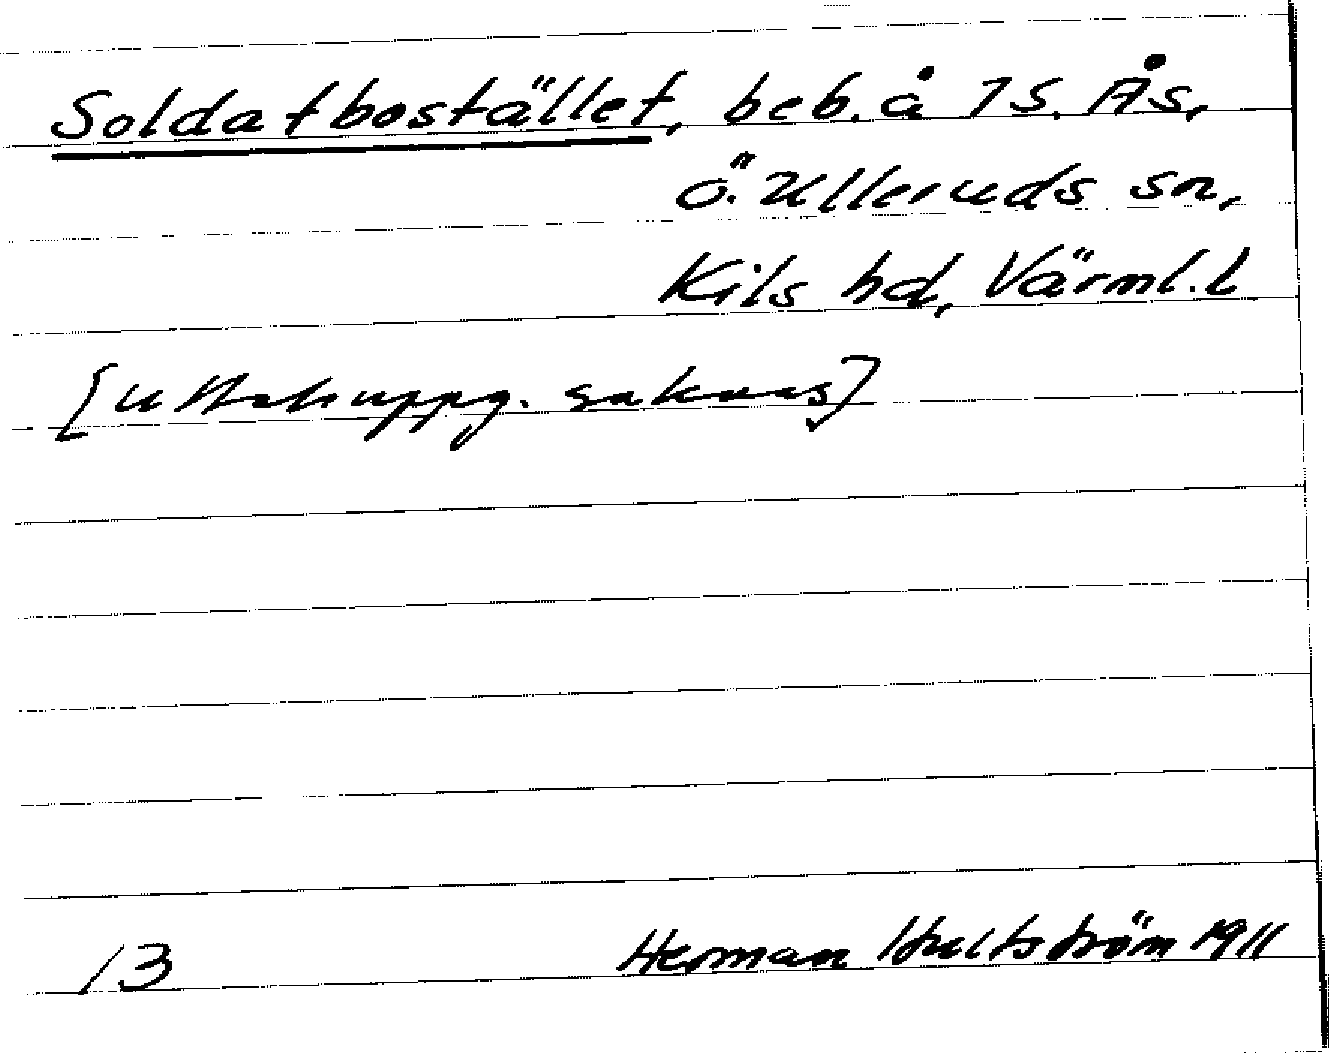 Soldatbostället, beb. å 1 S. Ås,
Ö. Ulleruds sn,
Kils hd, Värml. l
[uttalsuppg. saknas]
13 Herman Hultström 1911